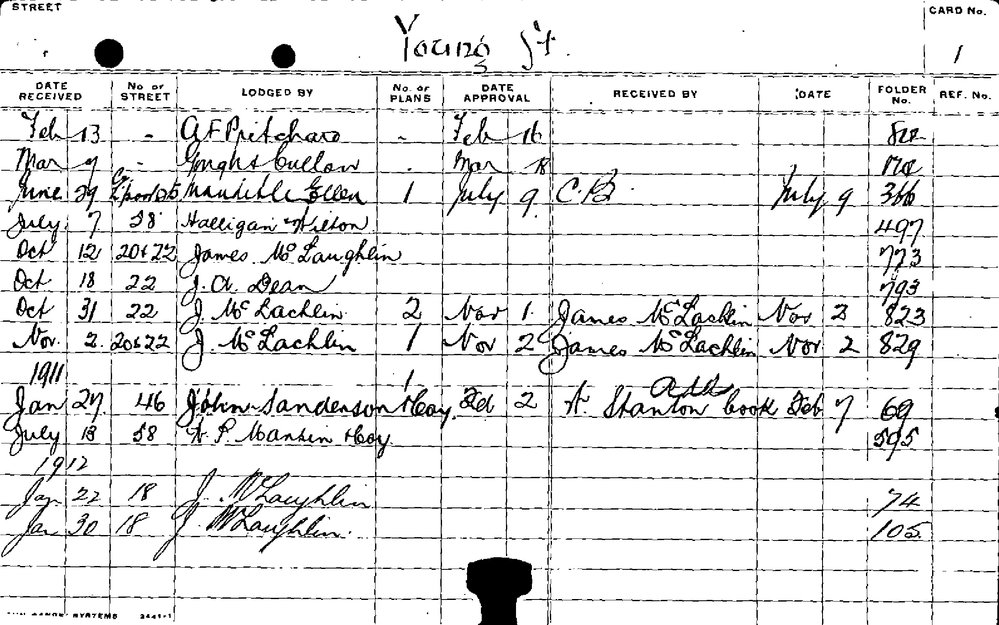 STREET Young St. CARD No. 1
DATE RECEIVED No. OF STREET LODGED BY No. OF PLANS DATE APPROVAL RECEIVED BY DATE FOLDER No. REF. No.
Feb 13 - A F Pritchard - Feb 16
Mar 9 - . Mar 18
June 29 Ellen 1 July 9 C.B. July 9 366
July 7 58 Halligan & Wilton 497
Oct 12 20 & 22 James McLaughlin 773
Oct 18 22 J. A. Dean 793
Oct 31 22 J. McLachlin 2 Nov 1 James McLachlin Nov 2 823
Nov. 2 20 & 22 J. McLachlin 1 Nov 2 James McLachlin Nov 2 829
1911
Jan 27 46 John Sanderson & Coy 1 Feb 2 Stanton Cook Feb 7 69
July 13 58 & Coy. 595
1912
Jan 22 18 J. McLaughlin 74
Jan 30 18 J. McLaughlin. 105
SYSTEMS